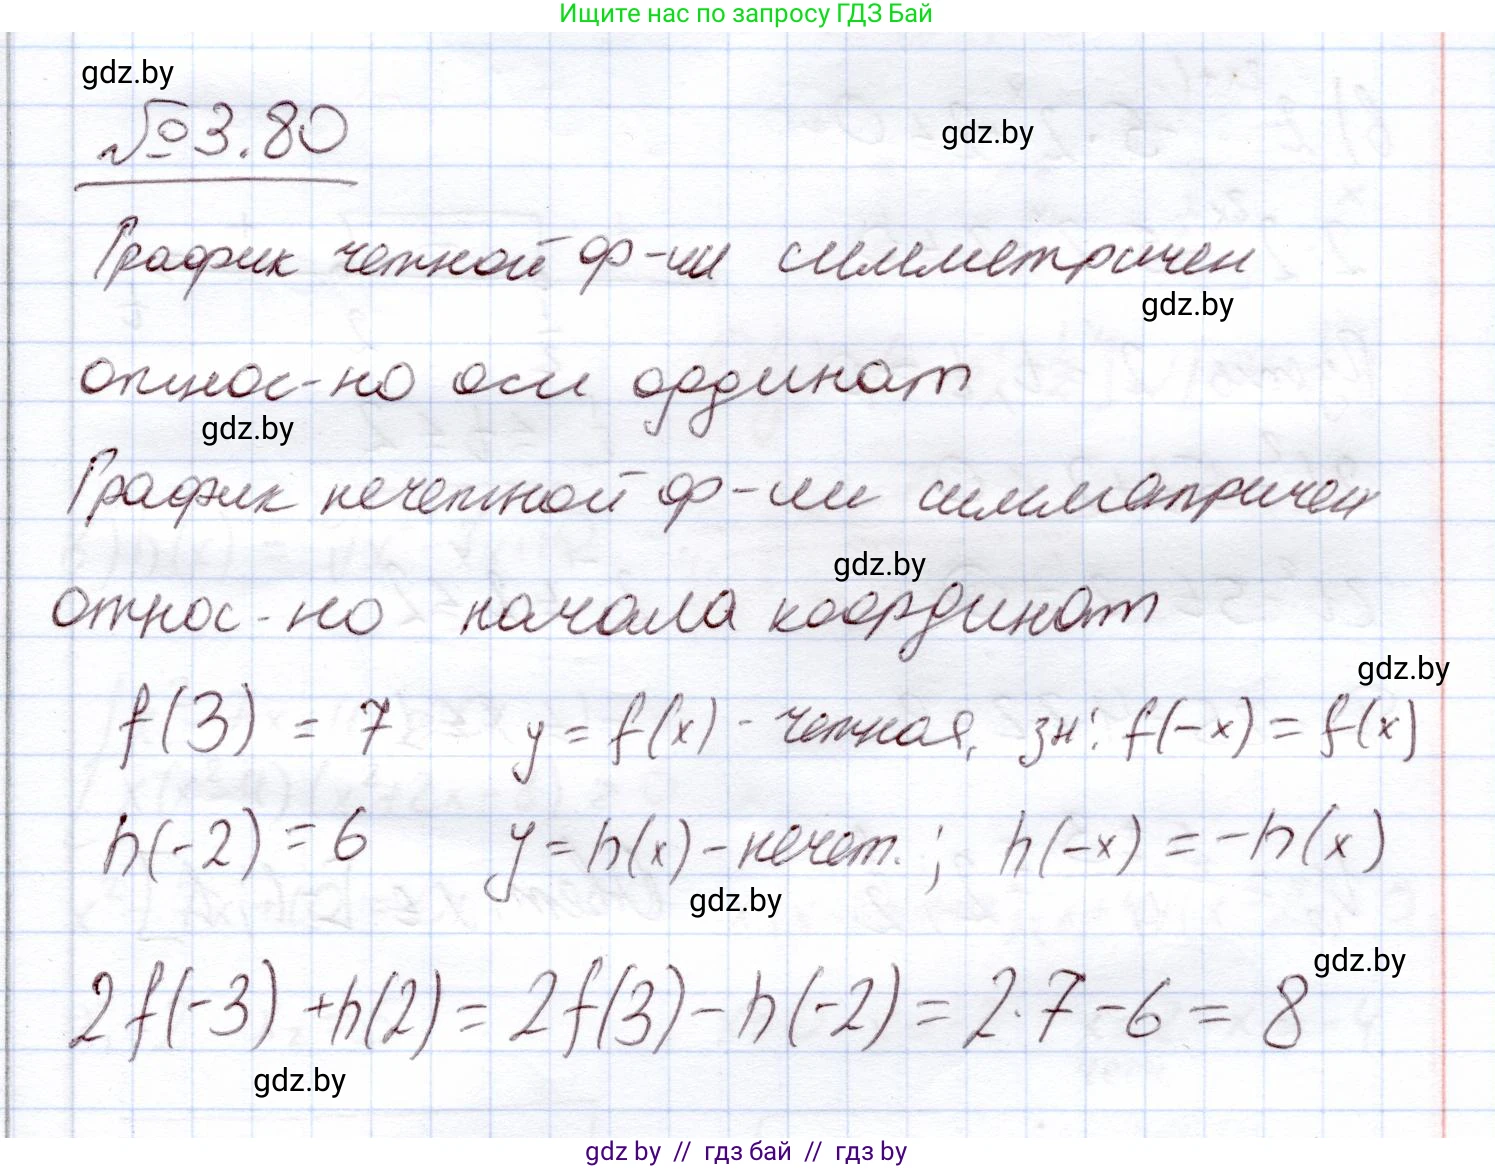 Ищите нас по запросу ГДЗ Бай
gdz.by
№3.80
gdz.by
График четной ф-ии симметричен
gdz.by
относ-но оси ординат
gdz.by
График нечетной ф-ии симметричен
gdz.by
относ-но начала координат
gdz.by
f(3) = 7 y = f(x) - четная, зн: f(-x) = f(x)
h(-2) = 6 y = h(x) - нечет.; h(-x) = -h(x)
gdz.by
gdz.by
2f(-3) + h(2) = 2f(3) - h(-2) = 2·7 - 6 = 8
gdz.by
gdz by // гдз бай // гдз by